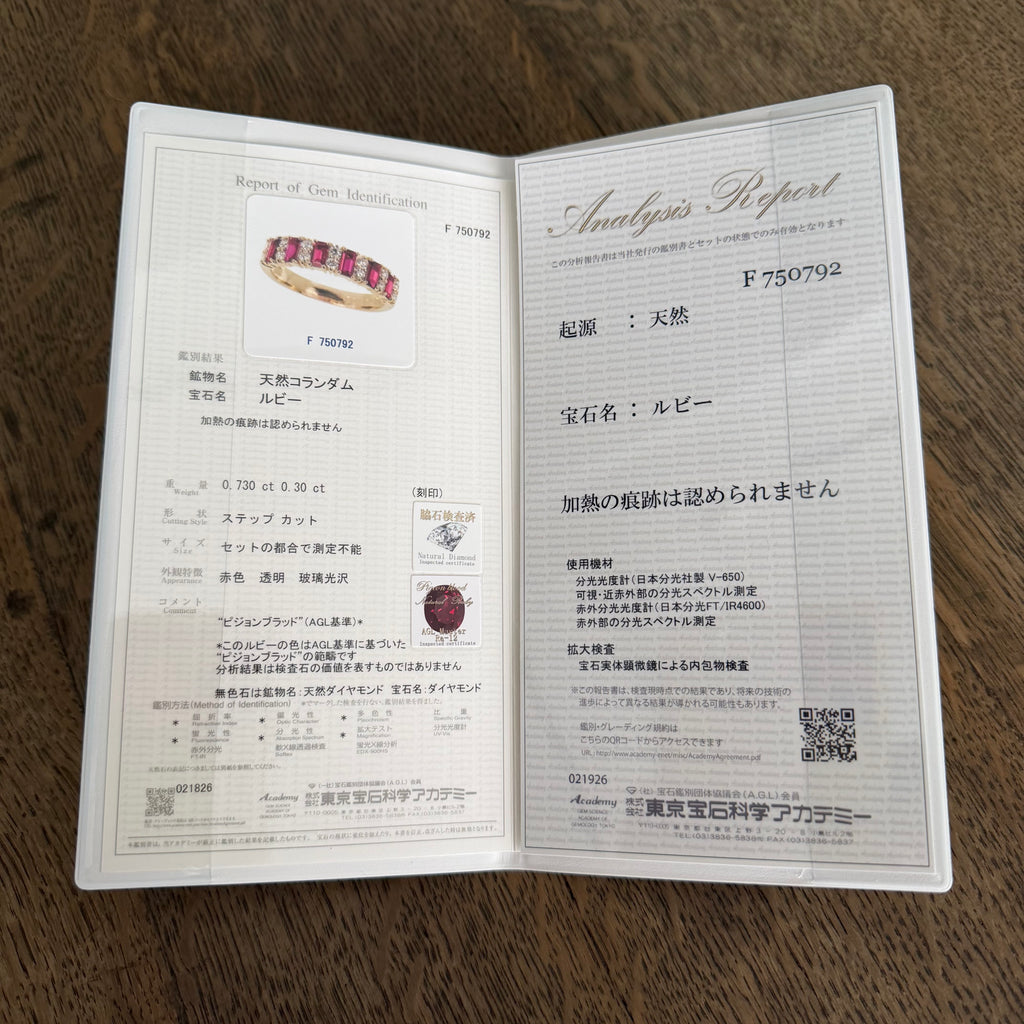 Report of Gem Identification
F 750792
F 750792
鑑別結果
鉱物名 天然コランダム
宝石名 ルビー
加熱の痕跡は認められません
重量 Weight 0.730 ct 0.30 ct
(刻印)
形状 Cutting Style ステップ カット
サイズ Size セットの都合で測定不能
外観特徴 Appearance 赤色 透明 玻璃光沢
コメント Comment
脇石検査済
Natural Diamond
Inspected certificate
Natural Ruby
Inspected certificate
"ピジョンブラッド"(AGL基準)*
*このルビーの色はAGL基準に基づいた
"ピジョンブラッド"の範疇です
分析結果は検査石の価値を表すものではありません
無色石は鉱物名:天然ダイヤモンド 宝石名:ダイヤモンド
鑑別方法(Method of Identification) *でマークした検査を行ない、鑑別結果を得ました。
* 屈折率 Refractive Index * 偏光性 Optic Character * 多色性 Pleochroism 比重 Specific Gravity
* 蛍光性 Fluorescence * 分光性 Absorption Spectrum * 拡大テスト Magnification 分光光度計 UV-Vis
* 赤外分光 FT-IR 軟X線透過検査 Softex 蛍光X線分析
021826
(一社)宝石鑑別団体協議会(A.G.L)会員
Academy
GEM SCIENCE
ACADEMY OF
GEMOLOGY TOKYO
株式会社 東京宝石科学アカデミー
Analysis Report
この分析報告書は当社発行の鑑別書とセットの状態でのみ有効となります
F 750792
起源 : 天然
宝石名 : ルビー
加熱の痕跡は認められません
使用機材
分光光度計(日本分光社製 V-650)
可視・近赤外部の分光スペクトル測定
赤外分光光度計(日本分光FT/IR4600)
赤外部の分光スペクトル測定
拡大検査
宝石実体顕微鏡による内包物検査
※この報告書は、検査現時点での結果であり、将来の技術の
進歩によって異なる結果が導かれる可能性もあります。
鑑別・グレーディング規約は
こちらのQRコードからアクセスできます
021926
(社)宝石鑑別団体協議会(A.G.L)会員
Academy
GEM SCIENCE
ACADEMY OF
GEMOLOGY TOKYO
株式会社 東京宝石科学アカデミー
〒110-0005 東京都台東区上野3-20-8 小島ビル2階
TEL(03)3836-5836㈹ FAX(03)3836-5837